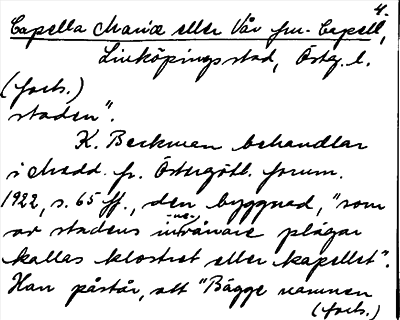 4.
Capella Mariæ eller Vår fru-Capell,
Linköpings stad, Östg. l.
(forts.)
staden".
K. Beckman behandlar
i Medd. fr. Östergötl. fornm.
1922, s. 65 ff., den byggnad, "som
av stadens invånare plägar
kallas klostret eller kapellet".
Han påstår, att "Bägge namnen
(forts.)